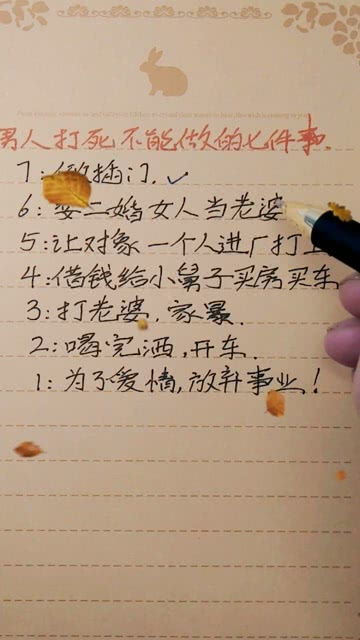 男人打死不能做的七件事.
7:做插门.
6:娶二婚女人当老婆
5:让对象一个人进厂打工
4:借钱给小舅子买房买车
3:打老婆,家暴.
2:喝完酒,开车.
1:为了爱情,放弃事业!